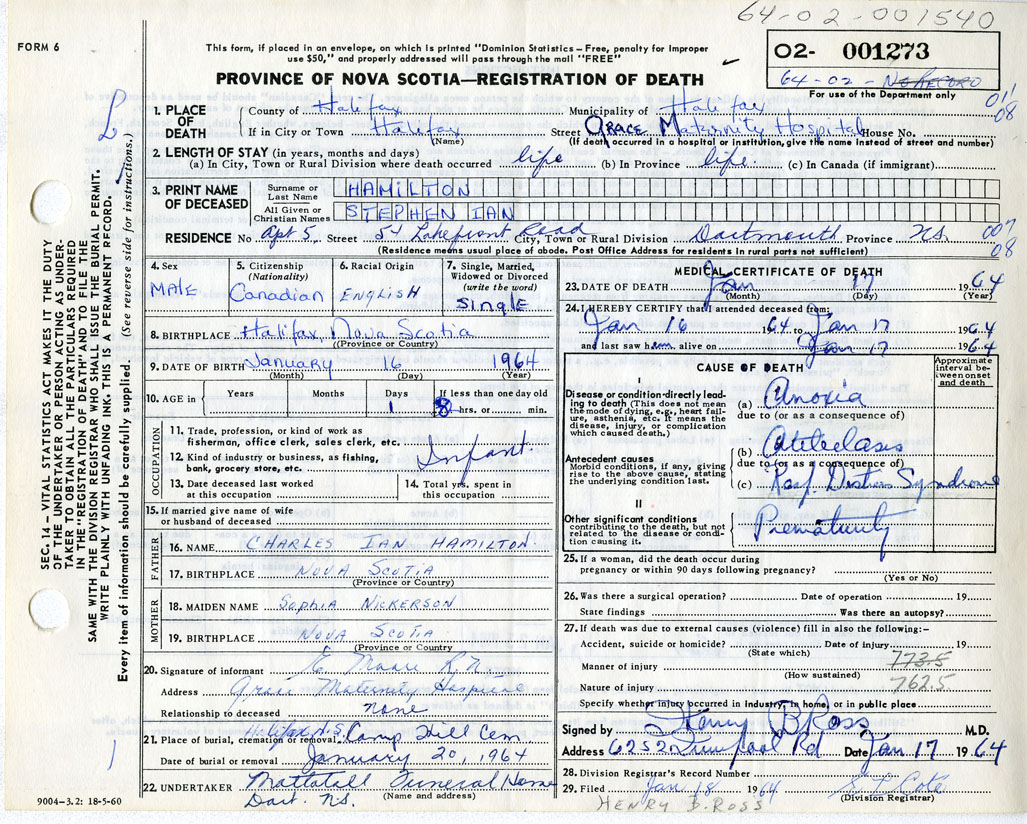 64-02-001540
FORM 6
This form, if placed in an envelope, on which is printed "Dominion Statistics – Free, penalty for improper
use $50," and properly addressed will pass through the mail "FREE"
PROVINCE OF NOVA SCOTIA—REGISTRATION OF DEATH
O2- 001273
64-02- NO RECORD
For use of the Department only
011
08
SEC. 14 – VITAL STATISTICS ACT MAKES IT THE DUTY
OF THE UNDERTAKER OR PERSON ACTING AS UNDER-
TAKER TO OBTAIN ALL THE PARTICULARS REQUIRED
IN THE "REGISTRATION OF DEATH" AND TO FILE THE
SAME WITH THE DIVISION REGISTRAR WHO SHALL ISSUE THE BURIAL PERMIT.
WRITE PLAINLY WITH UNFADING INK. THIS IS A PERMANENT RECORD.
Every item of information should be carefully supplied. (See reverse side for instructions.)
1. PLACE OF DEATH
County of Halifax Municipality of Halifax
If in City or Town Halifax Street Grace Maternity Hospital House No.
(Name) (If death occurred in a hospital or institution, give the name instead of street and number)
2. LENGTH OF STAY (in years, months and days)
(a) In City, Town or Rural Division where death occurred life (b) In Province life. (c) In Canada (if immigrant)
3. PRINT NAME OF DECEASED
Surname or Last Name HAMILTON
All Given or Christian Names STEPHEN IAN
RESIDENCE No Apt 5, Street 54 Lakefront Road City, Town or Rural Division Dartmouth Province N.S. 007
(Residence means usual place of abode. Post Office Address for residents in rural parts not sufficient) 08
4. Sex MALE
5. Citizenship (Nationality) Canadian
6. Racial Origin ENGLISH
7. Single, Married, Widowed or Divorced (write the word) Single
8. BIRTHPLACE Halifax, Nova Scotia
(Province or Country)
9. DATE OF BIRTH January 16 1964
(Month) (Day) (Year)
10. AGE in Years Months Days 1 If less than one day old 8 hrs. or min.
OCCUPATION
11. Trade, profession, or kind of work as fisherman, office clerk, sales clerk, etc.
12. Kind of industry or business, as fishing, bank, grocery store, etc.
Infant.
13. Date deceased last worked at this occupation
14. Total yrs. spent in this occupation
15. If married give name of wife or husband of deceased
FATHER
16. NAME CHARLES IAN HAMILTON
17. BIRTHPLACE NOVA SCOTIA
(Province or Country)
MOTHER
18. MAIDEN NAME Sophia NICKERSON
19. BIRTHPLACE NOVA SCOTIA
(Province or Country)
20. Signature of informant E. Moore R.N.
Address Grace Maternity Hospital
Relationship to deceased none
21. Place of burial, cremation or removal Halifax N.S. Camp Hill Cem
Date of burial or removal January 20, 1964
22. UNDERTAKER Mattatall Funeral Home
Dart. N.S. (Name and address)
9004-3.2: 18-5-60
MEDICAL CERTIFICATE OF DEATH
23. DATE OF DEATH Jan 17 1964
(Month) (Day) (Year)
24. I HEREBY CERTIFY that I attended deceased from:
Jan 16 1964 to Jan 17 1964
and last saw him alive on Jan 17 1964
CAUSE OF DEATH
Approximate interval between onset and death
I
Disease or condition directly leading to death (This does not mean the mode of dying, e.g., heart failure, asthenia, etc. It means the disease, injury, or complication which caused death.)
(a) Anoxia
due to (or as a consequence of)
Antecedent causes
Morbid conditions, if any, giving rise to the above cause, stating the underlying condition last.
(b) Atelectasis
due to (or as a consequence of)
(c) Resp. Distress Syndrome
II
Other significant conditions contributing to the death, but not related to the disease or condition causing it.
Prematurity
25. If a woman, did the death occur during pregnancy or within 90 days following pregnancy?
(Yes or No)
26. Was there a surgical operation? Date of operation 19
State findings Was there an autopsy?
27. If death was due to external causes (violence) fill in also the following:–
Accident, suicide or homicide? Date of injury 19
(State which) 773.5
Manner of injury
(How sustained) 762.5
Nature of injury
Specify whether injury occurred in industry, in home, or in public place
Signed by Henry B Ross M.D.
Address 6252 Date Jan 17 1964
28. Division Registrar's Record Number
29. Filed Jan 18 1964
(Division Registrar)
HENRY B. ROSS